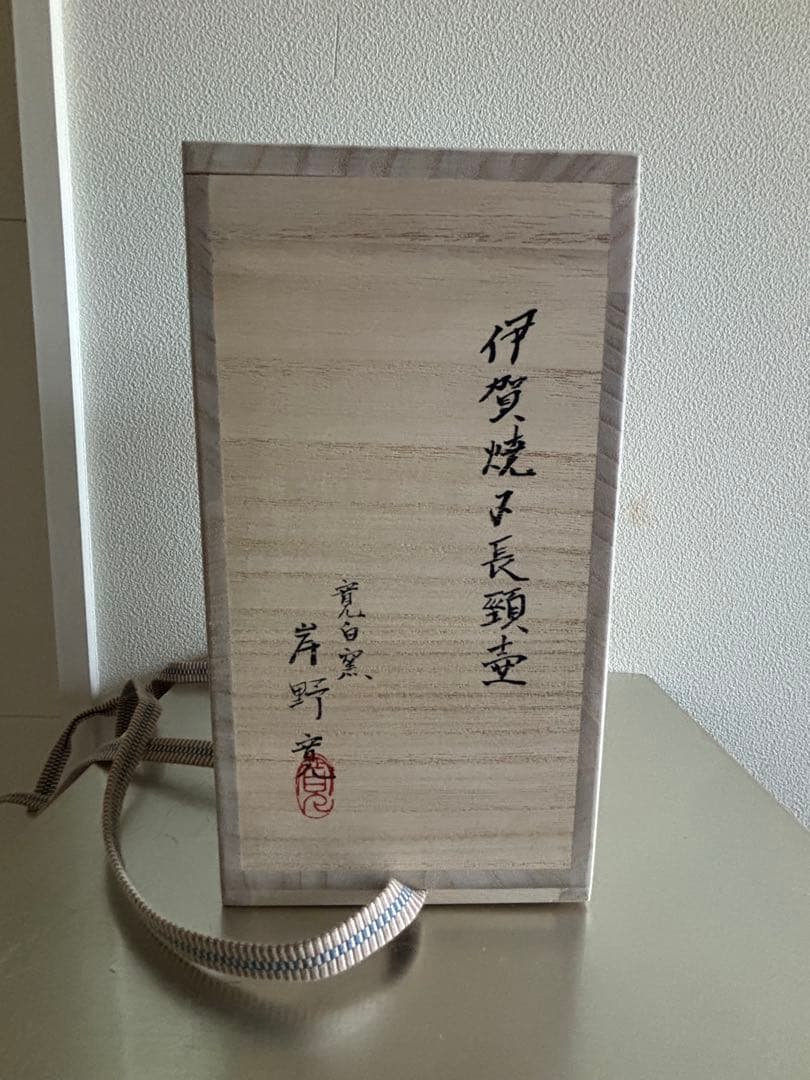 伊賀焼〆長頸壷
寛白窯
岸野寛